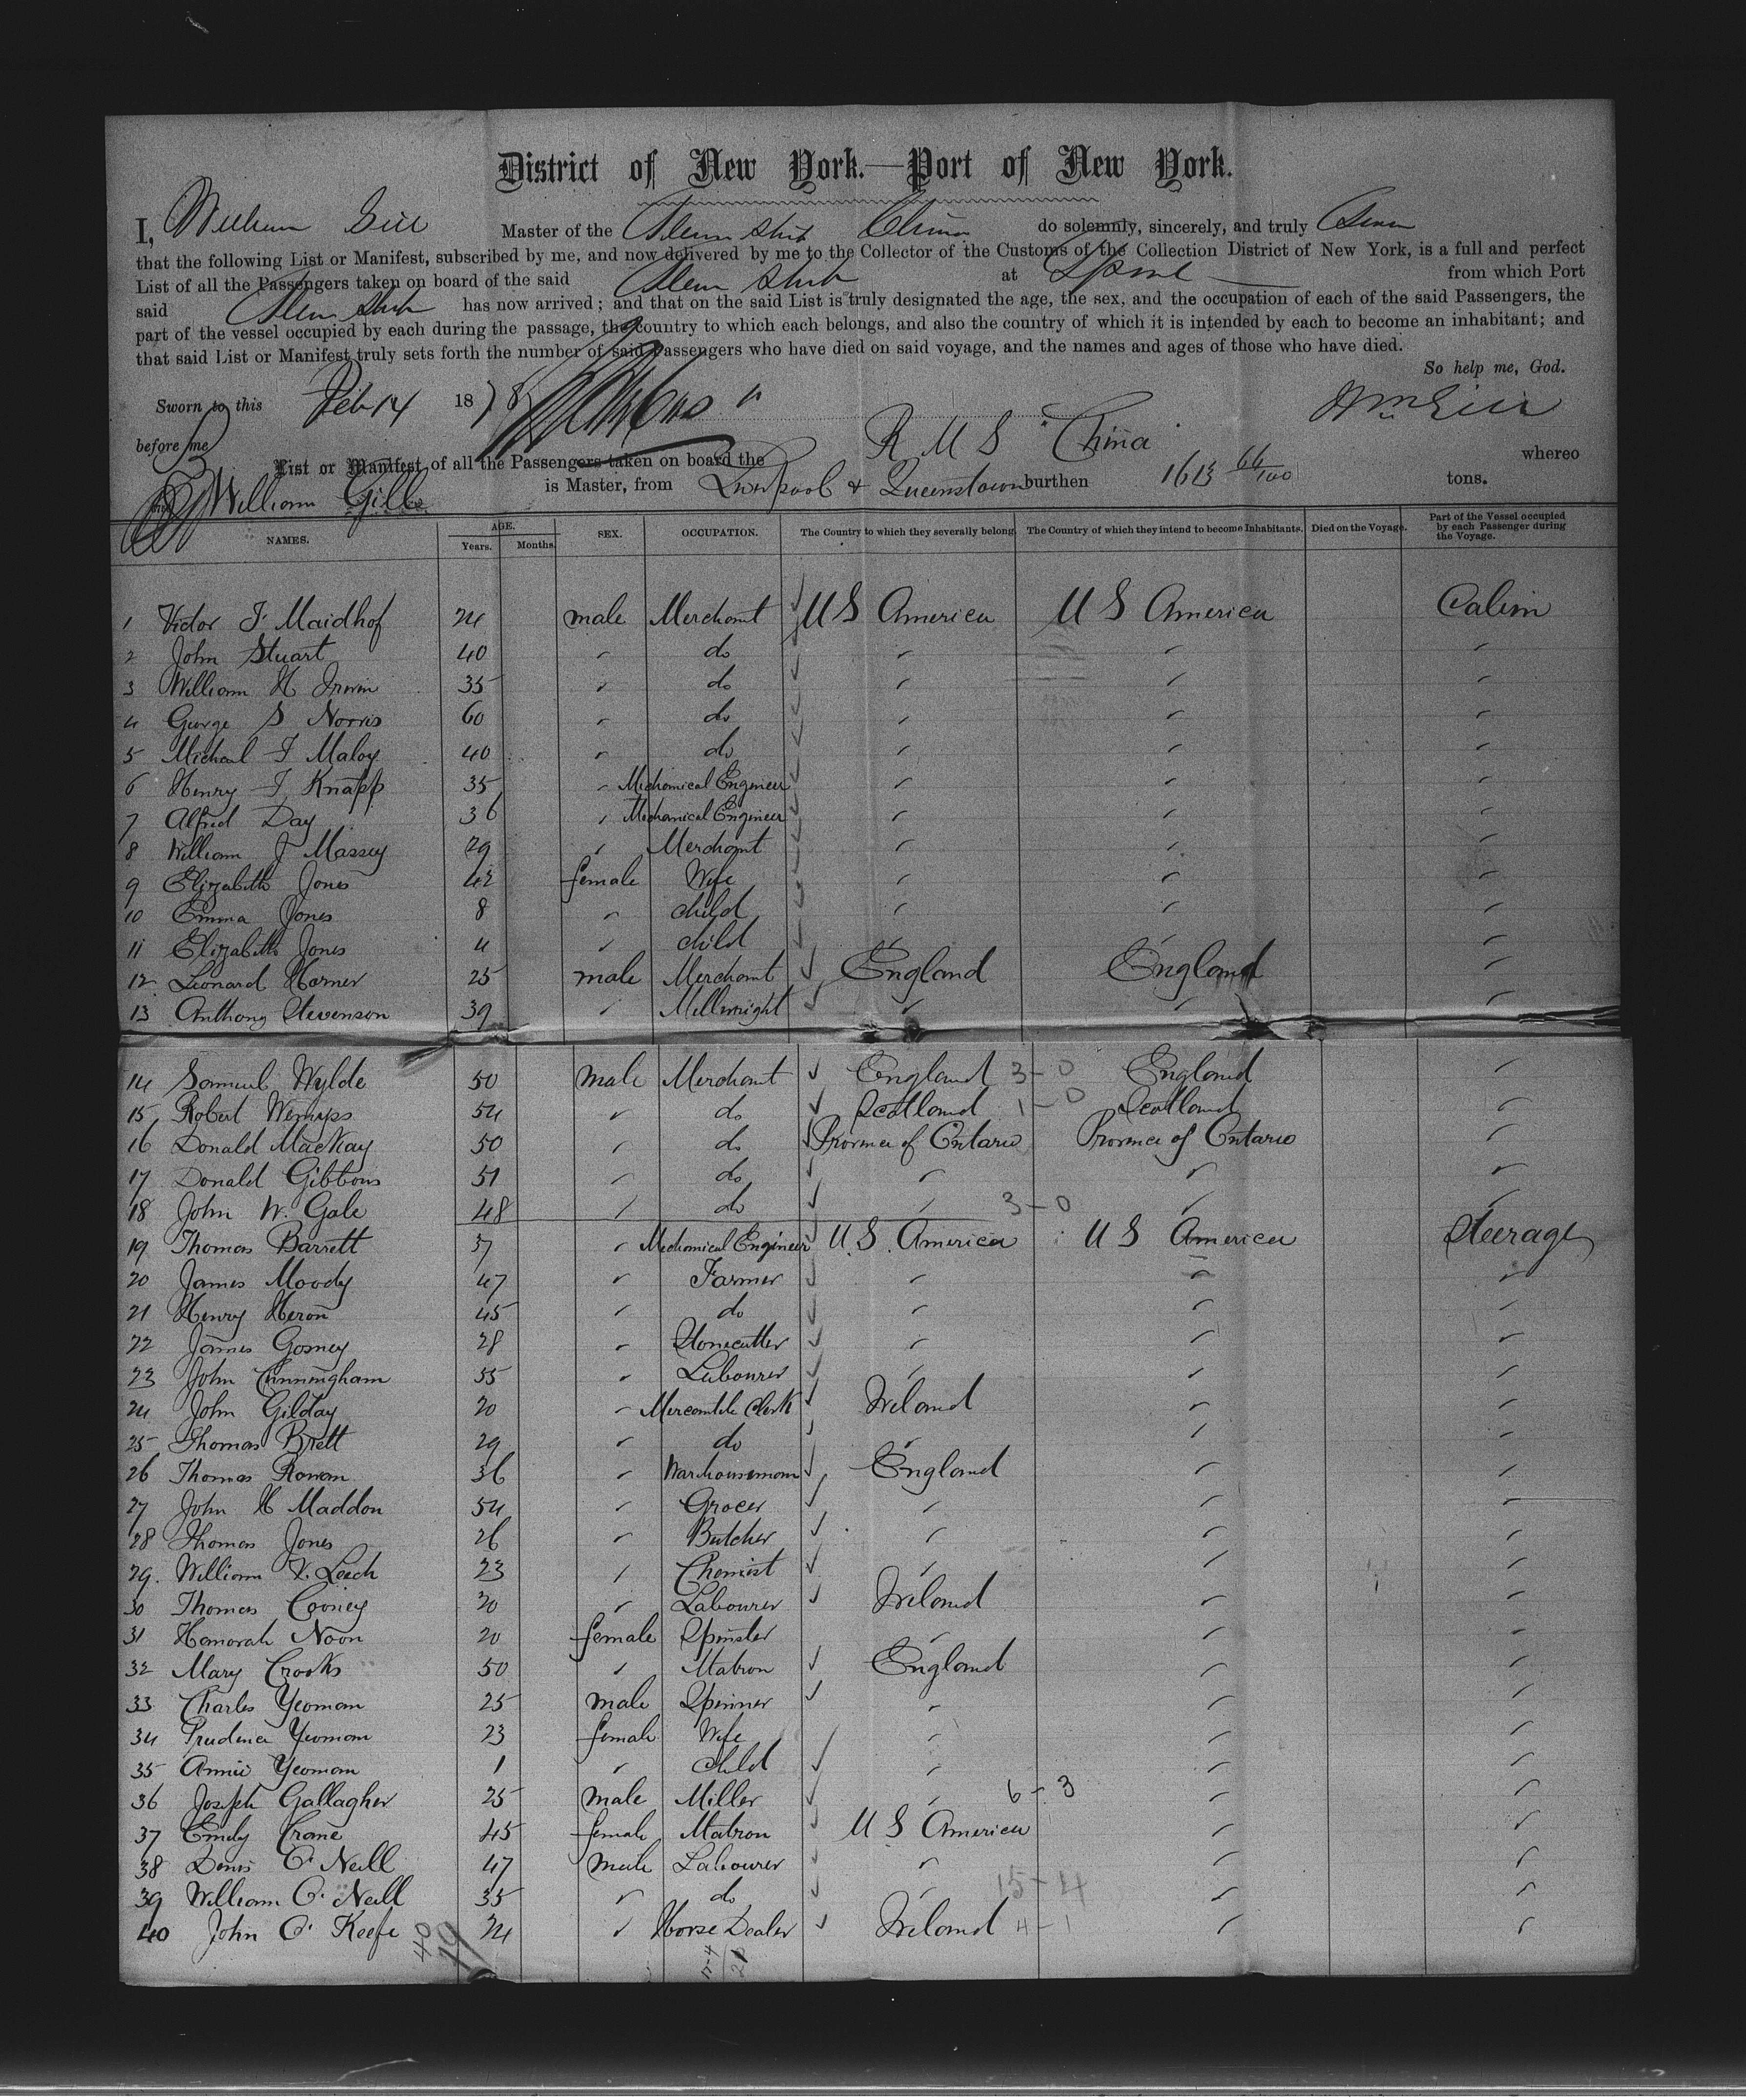 District of New York.—Port of New York.
I, William Gill Master of the Steam Ship China do solemnly, sincerely, and truly Swear
that the following List or Manifest, subscribed by me, and now delivered by me to the Collector of the Customs of the Collection District of New York, is a full and perfect
List of all the Passengers taken on board of the said Steam Ship at Lpool from which Port
said Steam Ship has now arrived; and that on the said List is truly designated the age, the sex, and the occupation of each of the said Passengers, the
part of the vessel occupied by each during the passage, the country to which each belongs, and also the country of which it is intended by each to become an inhabitant; and
that said List or Manifest truly sets forth the number of said Passengers who have died on said voyage, and the names and ages of those who have died.
So help me, God.
Sworn to this Feb 14 1878 Wm Gill
before me
List or Manifest of all the Passengers taken on board the R M S "China" whereo
William Gill is Master, from Liverpool & Queenstown burthen 1613 66/100 tons.
NAMES. AGE. Years. Months. SEX. OCCUPATION. The Country to which they severally belong. The Country of which they intend to become Inhabitants. Died on the Voyage. Part of the Vessel occupied by each Passenger during the Voyage.
1 Victor F. Maidhof 24 male Merchant U S America U S America Cabin
2 John Stuart 40 " do " " "
3 William H Irwin 35 " do " " "
4 George S Norris 60 " do " " "
5 Micheal F Maloy 40 " do " " "
6 Henry F Knapp 35 " Mechanical Engineer " " "
7 Alfred Day 36 " Mechanical Engineer " " "
8 William J Massey 29 " Merchant " " "
9 Elizabeth Jones 42 female Wife " " "
10 Emma Jones 8 " child " " "
11 Elizabeth Jones 4 " child " " "
12 Leonard Horner 25 male Merchant England England "
13 Anthony Stevenson 39 " Millwright " " "
14 Samuel Wylde 50 male Merchant England 3-0 England "
15 Robert Wemyss 54 " do Scotland 1-0 Scotland "
16 Donald MacKay 50 " do Province of Ontario Province of Ontario "
17 Donald Gibbons 51 " do " " "
18 John W. Gale 48 " do " 3-0 " "
19 Thomas Barrett 37 " Mechanical Engineer U.S. America U S America Steerage
20 James Moody 47 " Farmer " " "
21 Henry Heron 45 " do " " "
22 James Gosney 28 " Stonecutter " " "
23 John Cunningham 55 " Labourer " " "
24 John Gilday 20 " Mercantile Clerk Ireland " "
25 Thomas Brett 29 " do " " "
26 Thomas Rowan 36 " Warehouseman England " "
27 John H Maddon 54 " Grocer " " "
28 Thomas Jones 26 " Butcher " " "
29. William V. Leech 23 " Chemist " " "
30 Thomas Cooney 20 " Labourer Ireland " "
31 Honorah Noon 20 female Spinster " " "
32 Mary Crooks 50 " Matron England " "
33 Charles Yeoman 25 male Spinner " " "
34 Prudence Yeoman 23 female Wife " " "
35 Annie Yeoman 1 " child " " "
36 Joseph Gallagher 25 male Miller " 6-3 " "
37 Emily Crane 45 female Matron U S America " "
38 Denis O'Neill 47 male Labourer " " "
39 William O'Neill 35 " do " 15-4 " "
40 John O'Keefe 24 " Horse Dealer Ireland 4-1 " "
40